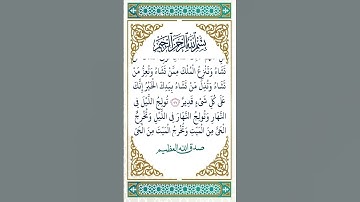 بِسْمِ ٱللَّٰهِ ٱلرَّحْمَٰنِ ٱلرَّحِيمِ
تَشَاءُ وَتَنْزِعُ الْمُلْكَ مِمَّنْ تَشَاءُ وَتُعِزُّ مَنْ
تَشَاءُ وَتُذِلُّ مَنْ تَشَاءُ بِيَدِكَ الْخَيْرُ إِنَّكَ
عَلَىٰ كُلِّ شَيْءٍ قَدِيرٌ تُولِجُ اللَّيْلَ فِي
النَّهَارِ وَتُولِجُ النَّهَارَ فِي اللَّيْلِ وَتُخْرِجُ
الْحَيَّ مِنَ الْمَيِّتِ وَتُخْرِجُ الْمَيِّتَ مِنَ الْحَيِّ
صدق الله العظيم